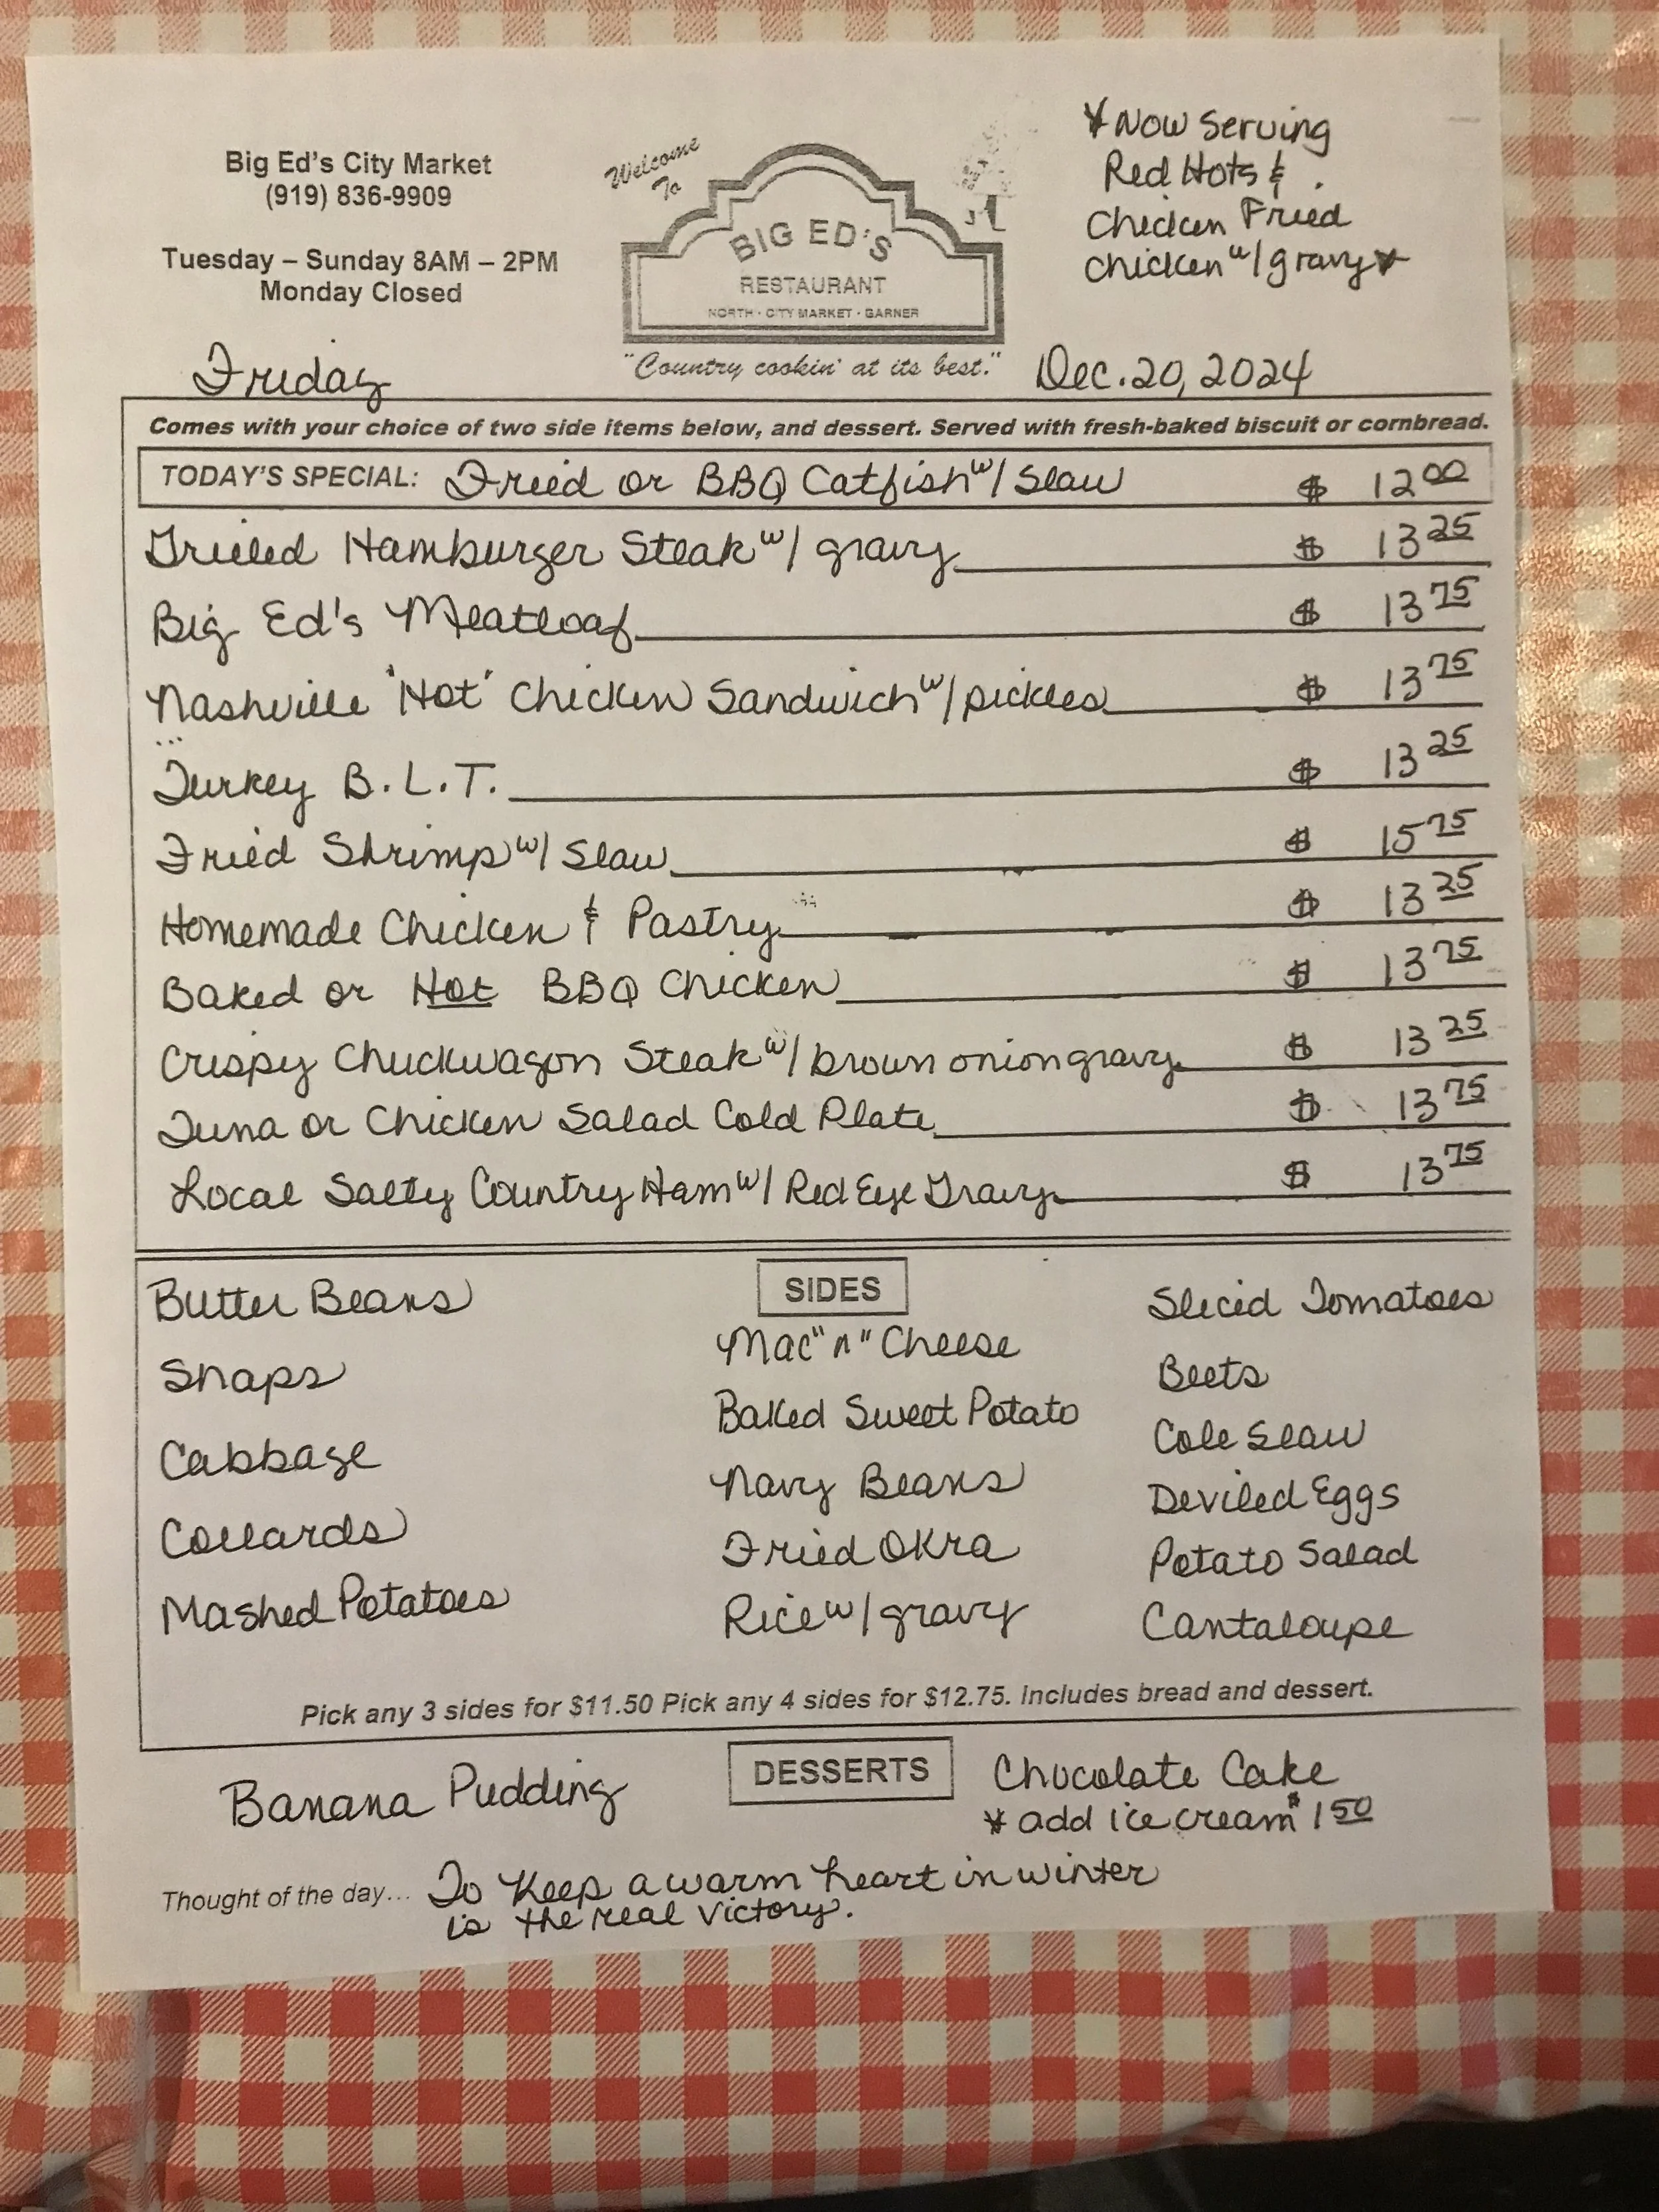 Big Ed's City Market
(919) 836-9909
Tuesday – Sunday 8AM – 2PM
Monday Closed
Welcome
To
BIG ED'S
RESTAURANT
NORTH · CITY MARKET · GARNER
"Country cookin' at its best."
*Now Serving
Red Hots &
Chicken Fried
Chicken w/gravy*
Friday
Dec. 20, 2024
Comes with your choice of two side items below, and dessert. Served with fresh-baked biscuit or cornbread.
TODAY'S SPECIAL: Fried or BBQ Catfish w/ Slaw $ 12 00
Grilled Hamburger Steak w/ gravy $ 13 25
Big Ed's Meatloaf $ 13 75
Nashville 'Hot' Chicken Sandwich w/ pickles $ 13 75
Turkey B.L.T. $ 13 25
Fried Shrimp w/ Slaw $ 15 75
Homemade Chicken & Pastry $ 13 25
Baked or Hot BBQ Chicken $ 13 75
Crispy Chuckwagon Steak w/ brown onion gravy $ 13 25
Tuna or Chicken Salad Cold Plate $ 13 75
Local Salty Country Ham w/ Red Eye Gravy $ 13 75
SIDES
Butter Beans
Snaps
Cabbage
Collards
Mashed Potatoes
Mac "n" Cheese
Baked Sweet Potato
Navy Beans
Fried Okra
Rice w/ gravy
Sliced Tomatoes
Beets
Cole Slaw
Deviled Eggs
Potato Salad
Cantaloupe
Pick any 3 sides for $11.50 Pick any 4 sides for $12.75. Includes bread and dessert.
DESSERTS
Banana Pudding
Chocolate Cake
* add ice cream $1 50
Thought of the day... To keep a warm heart in winter
is the real victory.